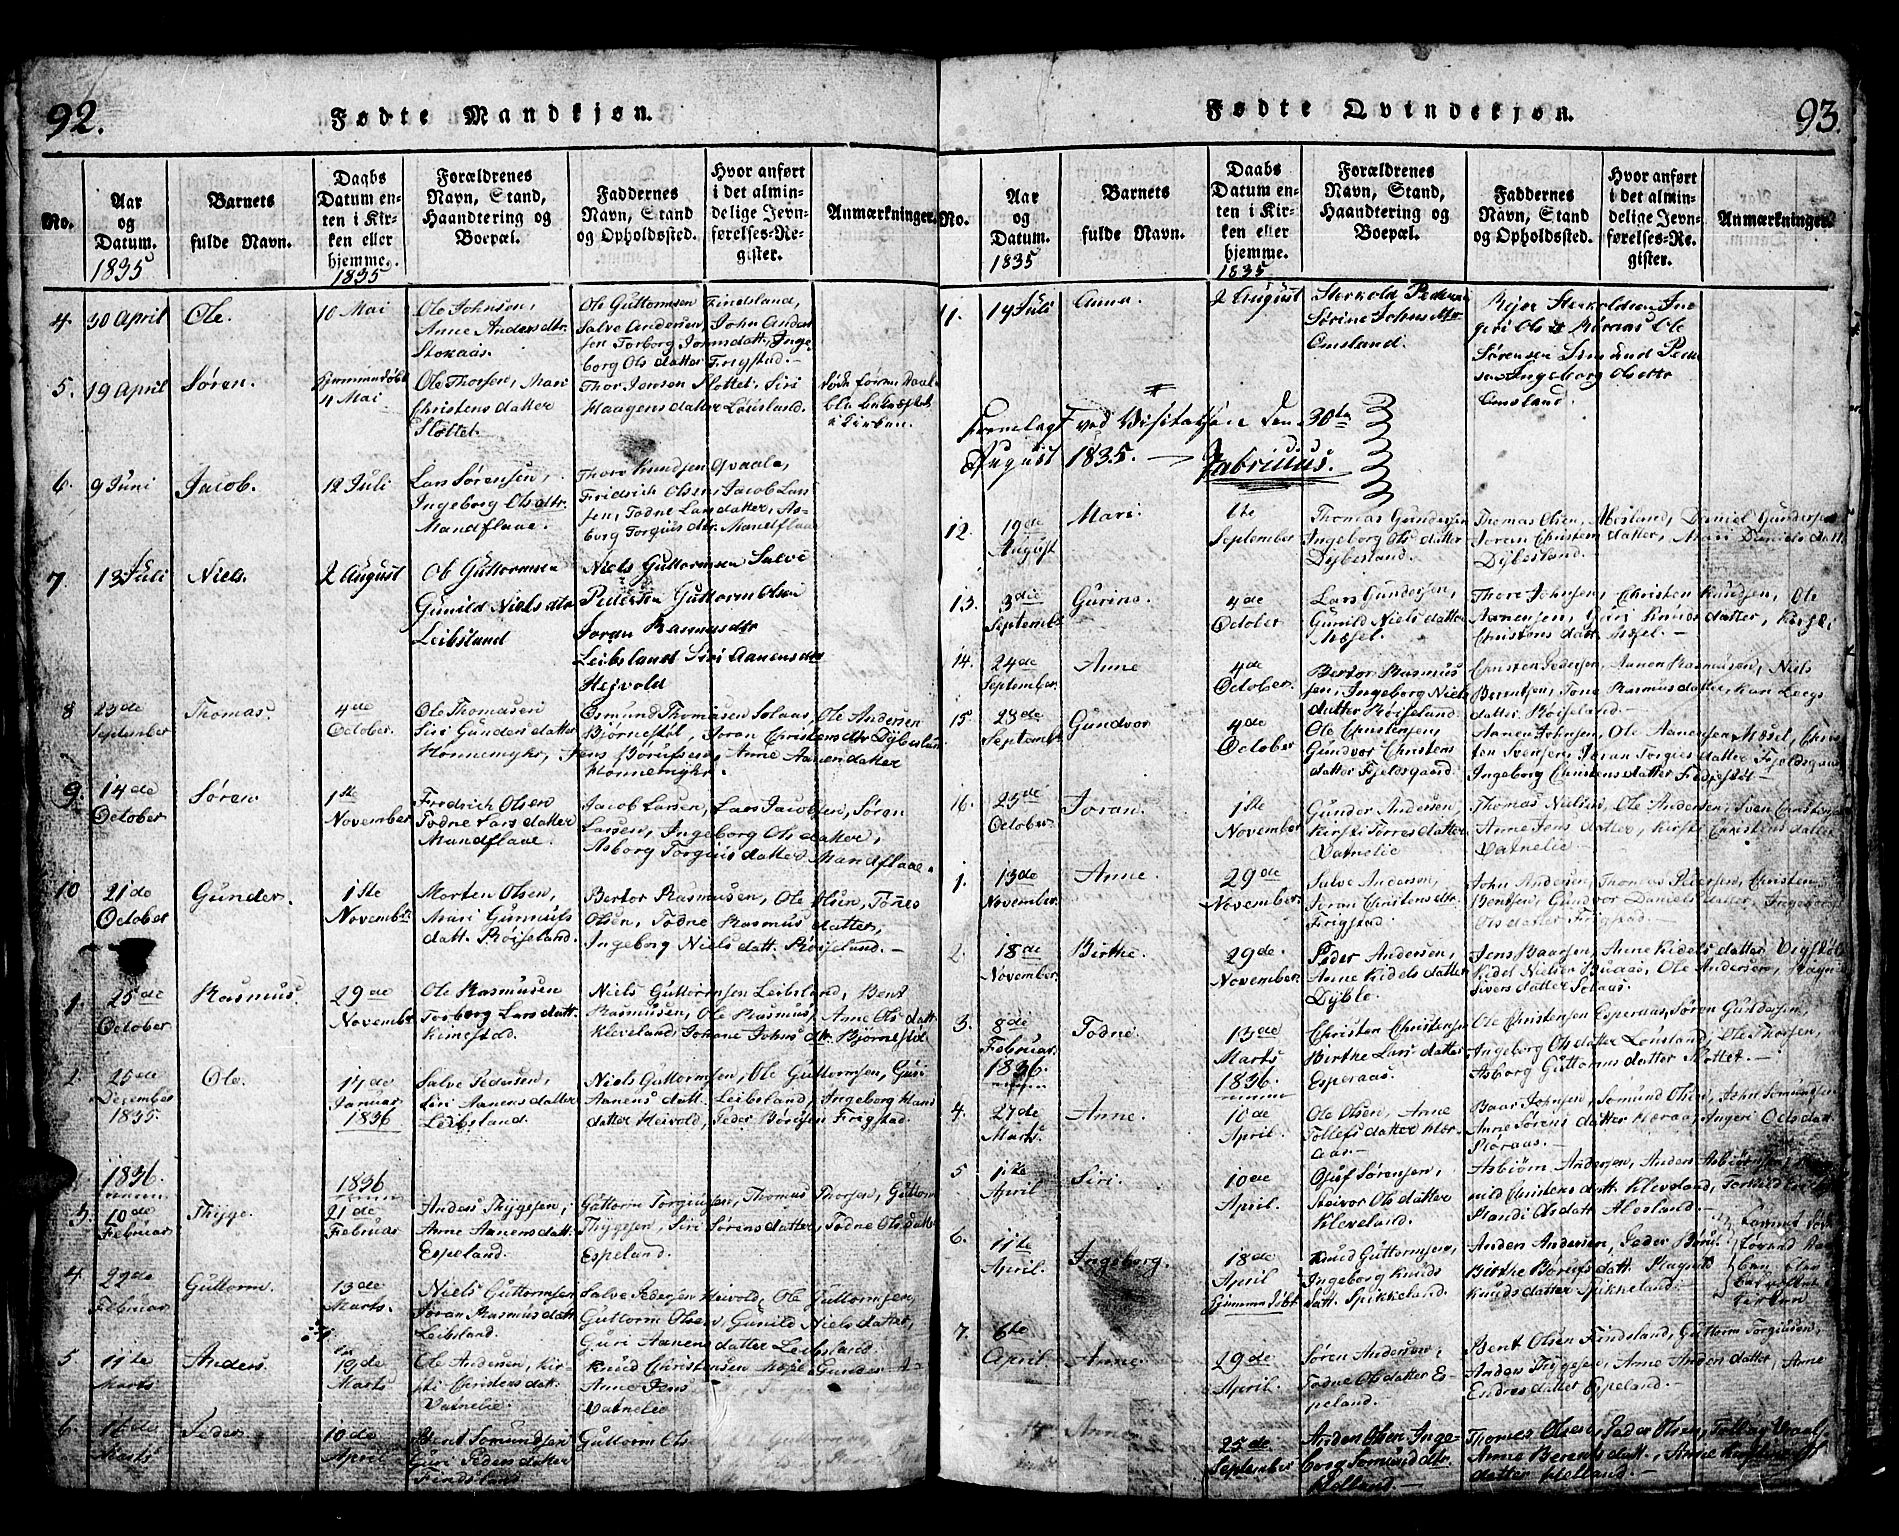 92.
Fødte Mandkjøn.
No.
Aar
og
Datum.
1835
Barnets
fulde Navn.
Daabs
Datum en-
ten i Kir-
ken eller
hjemme.
1835
Forældrenes
Navn, Stand,
Haandtering og
Boepæl.
Faddernes
Navn, Stand
og Opholdssted.
Hvor anført
i det almin-
delige Jevn-
førelses-Re-
gister.
Anmærkninger.
4 30 April Ole. 10 Mai
Ole Johnsen,
Anne Andersdtr
Stokaas.
Ole Guttormsen Findsland,
Salve Andersen, John Anders
sen Torborg Jornsdatt, Inge
borg Ols datter Frigstad. –
5. 19 April Søren. Hjemmedøbt
4 Mai
Ole Thorsen, Mari
Christens datter
Slottet.
Thor Jonsen Slottet, Siri
Haagens datter Lousland.
6. 9 Juni Jacob. 12 Juli
Lars Sørensen,
Ingeborg Olsdtr.
Mandflaae.
Thore Knudsen Qvaale,
Fridrich Olsen, Jacob Lars
sen, Todne Larsdatter, As-
borg Torguis dtr. Mandflaae
7 13 Juli Niels. 2 August
Ole Guttormsen
Gunild Niels dtr
Leibsland
Niels Guttormsen Salve
Pedersen Guttorm Olsen
Joran Rasmusdtr
Leibsland Siri Aanensdtr
Heivold
8 23de
September
Thomas. 4de
October.
Ole Thomasen
Siri Gunders datter
Honnemyhr,
Osmund Thomasen Solaas, Ole Andersen
Bjørnestøl, Joran Christensdtr Dybesland
Jens Børufsen, Anne Aanen datter
Honnemyhr.
9. 14de
October
Søren 1ste
November
Fredrich Olsen
Todne Lars datter
Mandflaae.
Jacob Larsen, Lars Jacobsen, Søren
Larsen, Ingeborg Ols datter,
Asborg Torguis datter Mandflaae.
10 21de
October
Gunder. 1ste
November
Morten Olsen,
Mari Gunnufs
datt. Røiseland.
Bertor Rasmusen, Ole Olsen, Tønes
Olsen, Todne Rasmus datter,
Ingeborg Niels datt. Røiseland. –
1. 25de
October
Rasmus. 29de
November
Ole Rasmusen
Torborg Lars datt.
Kimestad.
Niels Guttormsen Leibsland, Bent
Rasmusen, Ole Rasmus, Anne Ols datt.
Kleveland, Johane Johns dtr. Bjørnestøl
2. 25de
December
1835.
Ole. 17de
Januar
1836
Salve Pedersen,
Siri Aanens datter
Leibsland.
Niels Guttormsen, Ole Guttormsen, Guri
Aanens datt. Leibsland, Ingeborg Hans
datter Heivold, Peder Børufsen Frigstad.
1836.
3. 20de
Februar
Thyge. 1836
21de
Februar
Anders Thygesen,
Anne Aanens datt.
Espeland.
Guttorm Torgiusen, Thomas Thorsen, Guttorm
Thygesen, Siri Sørens datter, Todne Ols datt.
Espeland.
4. 22de
Februar
Guttorm. 13de
Marts.
Niels Guttormsen
Joran Rasmus datt.
Leibsland.
Salve Pedersen Heivold, Ole Guttormsen,
Guttorm Olsen, Gunild Niels datter,
Guri Aanens datter Leibsland.
5 11te
Marts
Anders. 19de
Marts
Ole Andersen, Kir-
sti Christens datt.
Vatnelie.
Knud Christensen
Anne Jens
Vatnelie
6. 16de
Marts
Peder 10de
April
Bent Somundsen
Guri Peders datter
Findsland
Guttorm Olsen
93.
Fødte Qvindekjøn.
No.
Aar
og
Datum.
1835
Barnets
fulde Navn.
Daabs
Datum en-
ten i Kir-
ken eller
hjemme.
1835
Forældrenes
Navn, Stand,
Haandtering og
Boepæl.
Faddernes
Navn, Stand
og Opholdssted.
Hvor anført
i det almin-
delige Jevn-
førelses-Re-
gister.
Anmærkninger.
11. 14 Juli Anna. 2 August
Sterkold Peders
Sørine Johns dtr
Omsland.
Reier Sterkoldsen In-
geri Ols dtr Røraas Ole
Sørensen
Ingeborg Olsdtr
Omsland.
Foredlagt ved Visitatsen den 30te
August 1835. – Fabritius.
12. 19de
August
Mari. 6te
September
Thomas Gundersen
Ingeborg Ols datter
Dybesland.
Thomas Olsen, Mosland, Daniel Gundersen
Joran Christens datter, Mari Daniels datt
Dybesland.
13. 3die
September
Gurine. 4de
October
Lars Gundersen,
Gunild Niels datter
Mæsel.
Thore Johnsen, Christen Knudsen, Ole
Aanensen, Guri Knuds datter, Kirsti
Christens datt. Mæsel. –
14. 24de
September.
Anne 4de
October.
Bertor Rasmus
sen, Ingeborg Niels
datter Røiseland.
Christen Pedersen, Aanen Rasmusen, Niels
Berentsen, Tone Rasmus datter, Kari Leegs
datter Røiseland. –
15 23de
September
Gundvor 4de
October
Ole Christensen,
Gundvor Christens
datter Fjeldsgaard.
Aanen Johnsen, Ole Aanensen Mæsel, Chris
ten Svensen, Joran Torgius datter Fjeldsgaard
Ingeborg Christens datter
16. 25de
October.
Joran. 1ste
November
Gunder Andersen,
Kirsti Torres datter
Vatnelie
Thomas Nielsen, Ole Andersen, Sven Christensen
Anne Jens datter, Kirsti Christens datter
Vatnelie –
1. 13de
November.
Anne. 29de
November.
Salve Andersen,
Joran Christens dtr.
Frigstad.
John Andersen, Thomas Pedersen, Christen
Bentsen, Gundvor Daniels datter, Ingeborg
Ols datter Frigstad. –
2. 18de
November.
Birthe. 29de
November.
Peder Andersen,
Anne Kidels datter
Dyblé.
Jens Baarsen, Anne Kidels datter Vigstøl
Kidel Nielsen Buaas, Ole Andersen,
Sivers datter Solaas.
3. 8de
Februar
1836.
Todne. 13de
Marts
1836.
Christen Christensen
Birthe Lars datter
Esperaas.
Ole Christensen Esperaas, Søren Gundersen,
Ingeborg Ols datter Lousland, Ole Thorsen,
Asborg Guttorms datter Slottet. –
4. 27de
Marts.
Anne. 10de
April.
Ole Olsen, Anne
Tollefs datter Rør-
aas.
Baar Johnsen, Somund Olsen, John Somundsen
Anne Sørens datter Røraas, Ingeri Ols datt.
Røraas. –
5. 1ste
April
Siri. 10de
April.
Oluf Sørensen,
Reivor Ols datter
Kleveland.
Asbiørn Andersen, Anders Asbiørnsen,
nild Christens datt. Kleveland, Torkild
Randi Olsdatt. Alesland. –
6. 11te
April.
Ingeborg. 18de
April
Hjemmedøbt
Knud Guttormsen,
Ingeborg Knuds
datt. Spikkeland.
Anders Andersen, Peder Børuf
Birthe Børufs datt.
Knuds datter Spikkeland.
7. 6te
April
Anne. 29de
April.
Søren Andersen,
Todne Ols datter E-
speland.
Bent Olsen Findsland, Guttorm Torgiusen,
Anders Thygesen, Anne Anders datter, Anne
Endres datter Espeland.
Anne. 25de
September
Anders Olsen Inge-
borg Somunds dtr.
Helland. –
Thomes Olsen, Peder Olsen,
Anne Berents datt. Anne
datter Helland. –